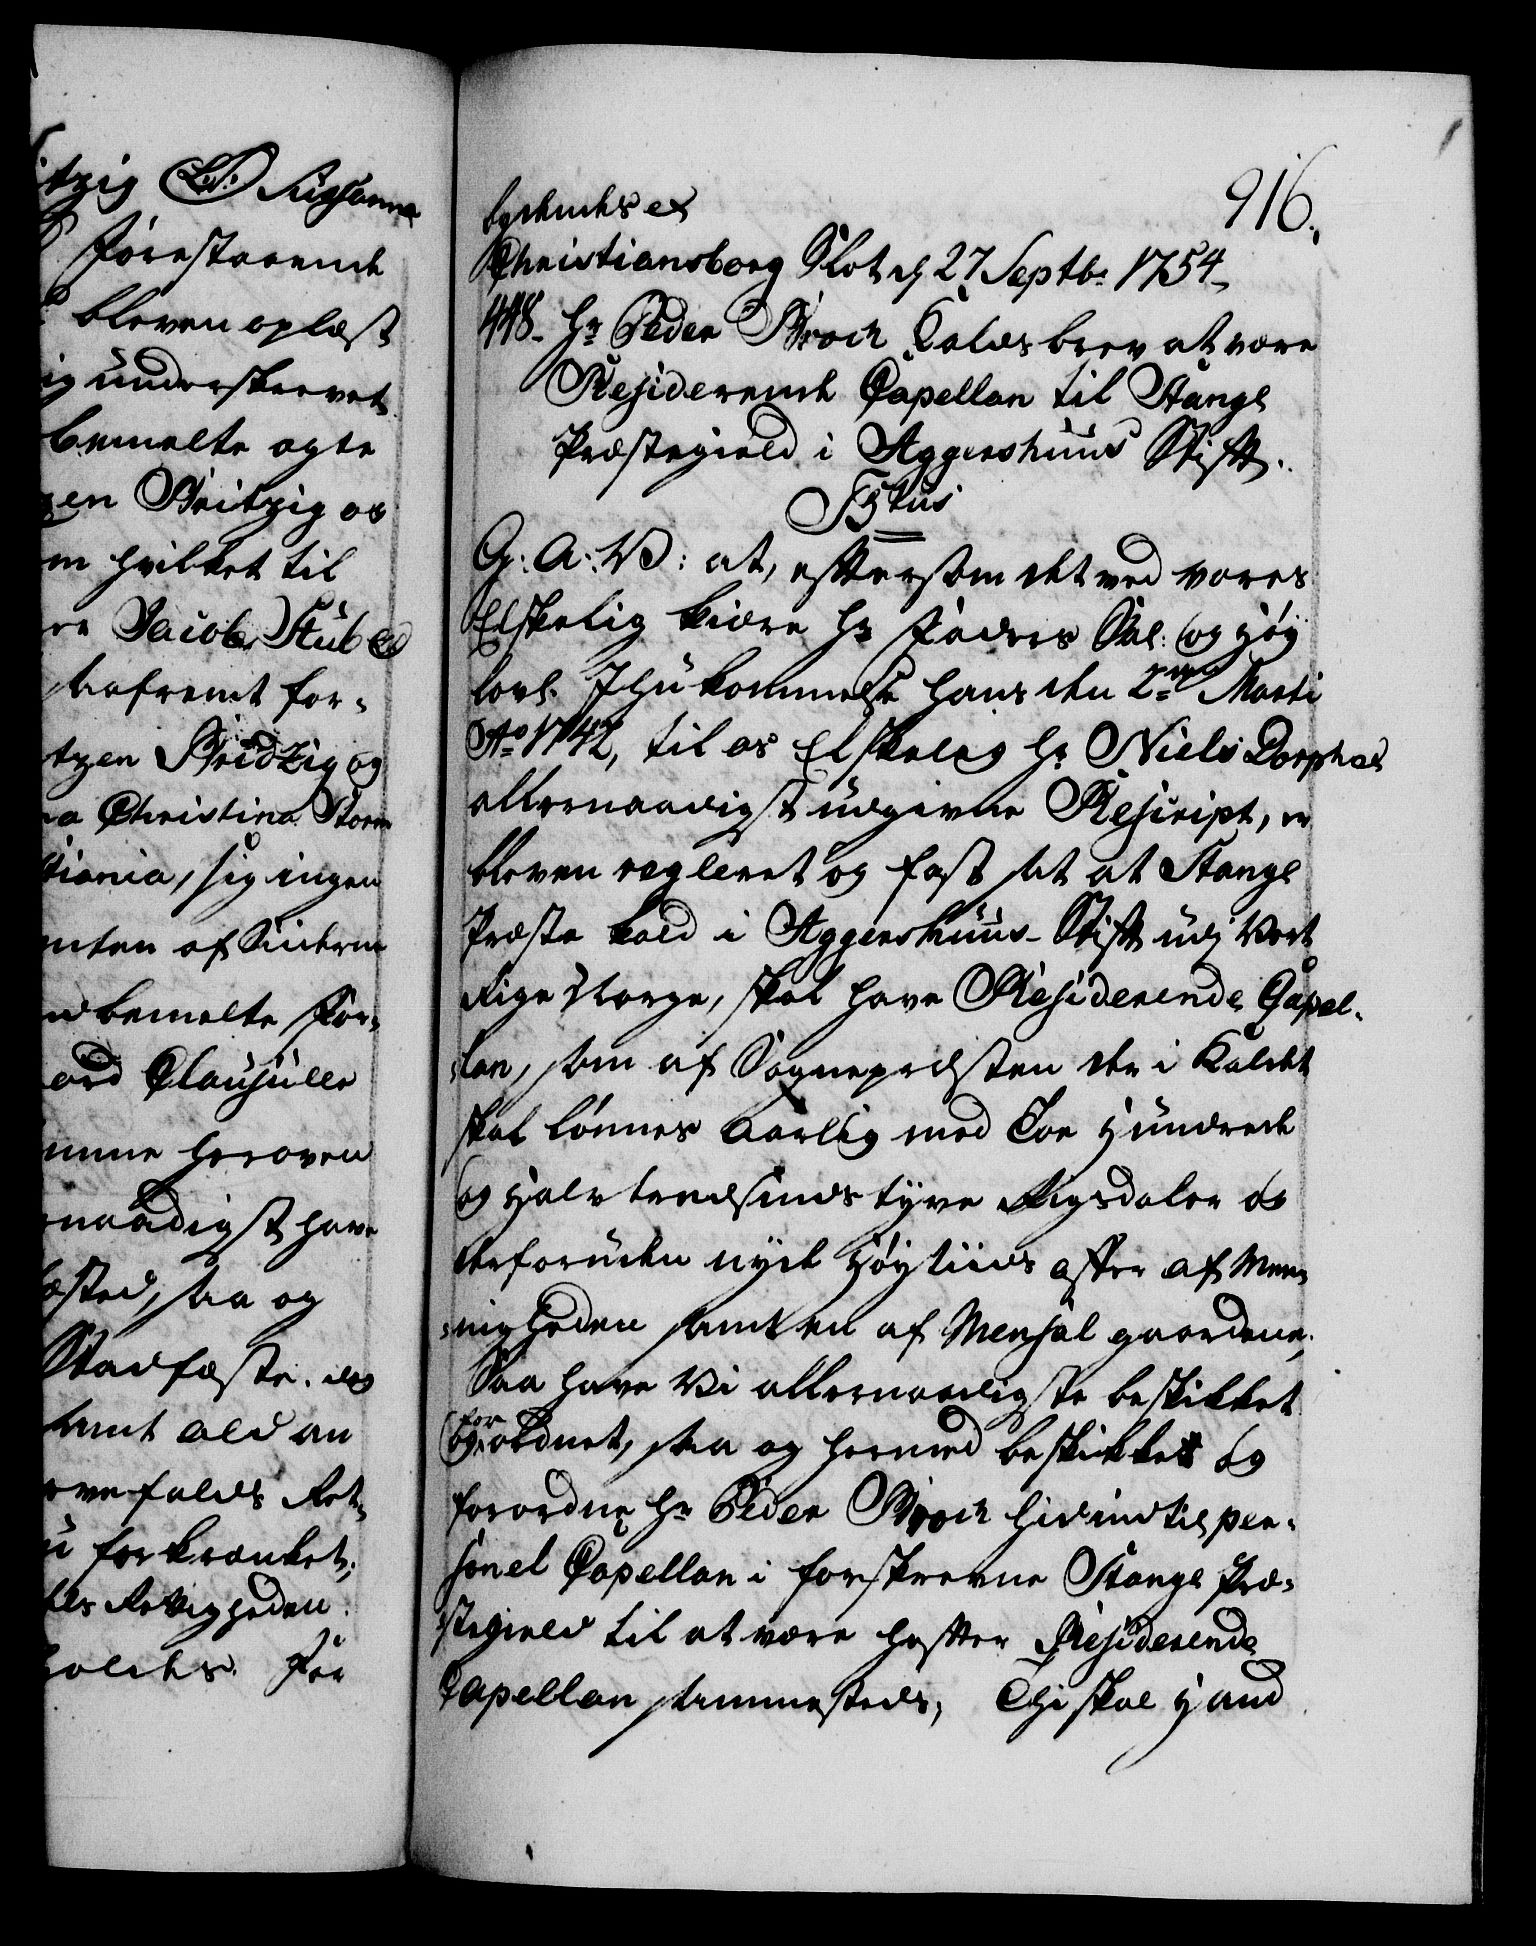 itzig LS. Susanna
forestaaende
bleven oplæst
ig underskrevet
bemelte ægte
zen Britzig os
m hvilket til
re Jacob Stub &
staafremt for-
tzen Bridzig og
na Christina Storm
tiania, sig ingen
nten af Siderne
bemelte for-
ord Clausulle
imme herover
naadigst have
æsted, saa og
Stadfæste. des
samt ald an
rvefalds Ret-
i forkrænket;
les Rettigheden.
holdes. For
916.
lydendes et
Christiansborg Slot d 27 Septb: 1754.
448. Hr Peder Broch Kalds brev at være
Residerende Capellan til Stange
Præstegield i Aggershuus Stift.
F5tus
G: A: V: at, efftersom det ved vores
Elskelig kiære Hr Faders Sal: og Høy
lovl. Ihukommelse hans den 2den Marti
Ao 1742, til os Elskelig Hr Niels Dorph
allernaadigst udgivne Rescript, er
bleven regleret og fast sat at Stange
Præste kald i Aggershuus Stift udj Vort
Rige Norge, skal have Residerende Capel-
lan, som af Sognepræsten der i Kaldet
skal lønnes aarlig med Toe Hundrede
og Halvtredsinds tyve Rigsdaler og
desforuden nyde Høytiids offer af Mee-
nigheden samt en af Mensal gaardene;
Saa have Vi allernaadigste beskikket
og forordnet, saa og hermed beskikke og
forordne Hr Peder Broch hidindtil per-
sonel Capellan i forskrevne Stange Præ-
stegield til at være heffter Residerende
Capellan sammesteds, Thi skal Hand